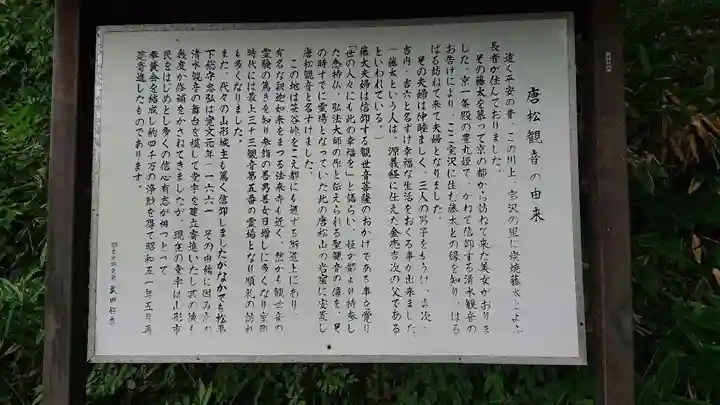 唐松観音の由来
遠く平安の昔、この川上、宝沢の里に炭焼藤太とよぶ
長者が住んでおりました。
その藤太を慕って京の都から訪ねて来た美女がおりま
した。京一条殿の豊丸姫で、かねて信仰する清水観音の
お告げにより、ここ宝沢に住む藤太との縁を知り、はる
ばる訪ねて来て夫婦となりました。
その夫婦は仲睦まじく、三人の男子をもうけ、吉次・
吉内・吉六と名ずけ幸福な生活をおくる事が出来ました。
(藤太という人は、源義経に仕えた金売吉次の父である
といわれている。)
藤太夫婦は信仰する観世音菩薩のおかげである事を覚り
「世の人々にも此の幸福を」と語らい、姫が都より持参し
た念持仏、弘法大師の作と伝えられる聖観音の像を、そ
の時すでに霊場となっていた此の唐松山の岩窟に安置し
唐松観音と名ずけました。
この地は笹谷峠をこえ都にも通ずる街道上にあり、
有名な釈迦如来をまつる法来寺も近く、然かも観世音の
霊験の篤きを知り参詣の善男善女日増しに多くなり室町
時代には最上三十三観音第五番の霊場となり順礼の訪れ
も多くなりました。
また、代々の山形城主も篤く信仰しましたがなかでも松平
下総守忠弘は寛文元年(一六六一)その由緒に因み京の
清水観音の舞台を模して堂宇を建立寄進いたし其の後も
幾度か修補をかさねてきましたが、現在の堂宇は山形市
民をはじめとし多くの信心有志が相つとって
奉賛会を結成し約四千万の浄財を得て昭和五一年五月再
建寄進したものであります。
武田好吉